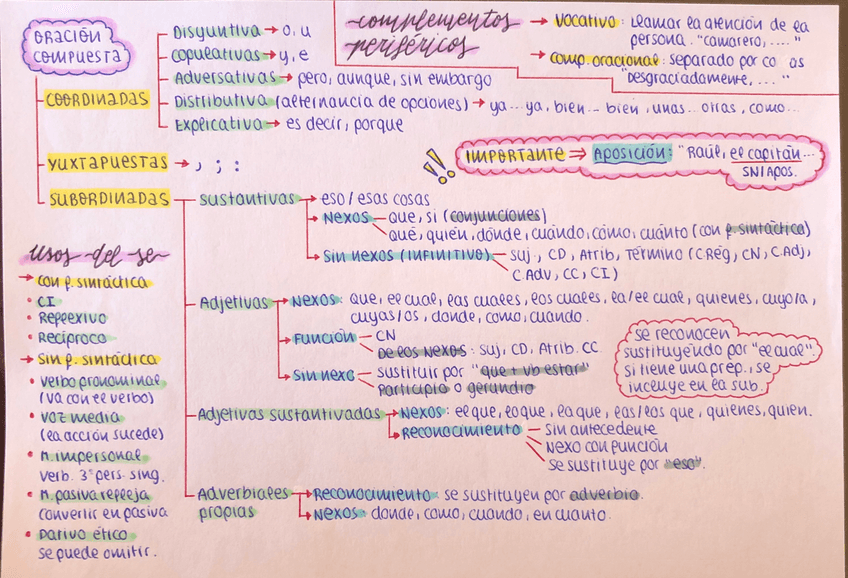 ORACIÓN
COMPUESTA
COORDINADAS
Disyuntiva → o, u
copulativas → y, e
Adversativas → pero, aunque, sin embargo
Distributiva (alternancia de opciones) → ya... ya, bien... bien, unas... otras, como...
Explicativa → es decir, porque
YUXTAPUESTAS → , ; :
SUBORDINADAS
complementos
periféricos
→ vocativo: llamar la atención de la
persona. "camarero, ...."
→ comp. oracional: separado por co as
"desgraciadamente, ...."
!! IMPORTANTE ⇒ APOSICIÓN: "Raúl, el capitán...
SN/Apos.
sustantivas → eso / esas cosas
Nexos - que, si (conjunciones)
qué, quién, dónde, cuándo, cómo, cuánto (con f. sintáctica)
sin nexos (INFINITIVO) - suj., CD, Atrib, término (C.Rég, CN, C.Adj,
C.Adv, CC, CI)
Adjetivas → Nexos: que, el cual, las cuales, los cuales, la/el cual, quienes, cuyo/a,
cuyas/os, donde, como, cuando.
Función - CN
De los nexos: suj, CD, Atrib. CC
sin nexo - sustituir por "que + vb estar"
Participio o gerundio
se reconocen
sustituyendo por "el cual".
si tiene una prep., se
incluye en la sub.
Adjetivas sustantivadas → Nexos: el que, lo que, la que, las/los que, quienes, quien.
Reconocimiento - sin antecedente
Nexo con función
se sustituye por "eso".
Adverbiales
propias
→ Reconocimiento: se sustituyen por adverbio.
→ Nexos: donde, como, cuando, en cuanto.
Usos del se
→ con f. sintáctica
• CI
• Reflexivo
• Recíproco
→ sin f. sintáctica
• verbo pronominal
(va con el verbo)
• voz media
(la acción sucede)
• M. impersonal
verb. 3ª pers. sing.
• M. pasiva refleja
convertir en pasiva
• Dativo ético
se puede omitir.